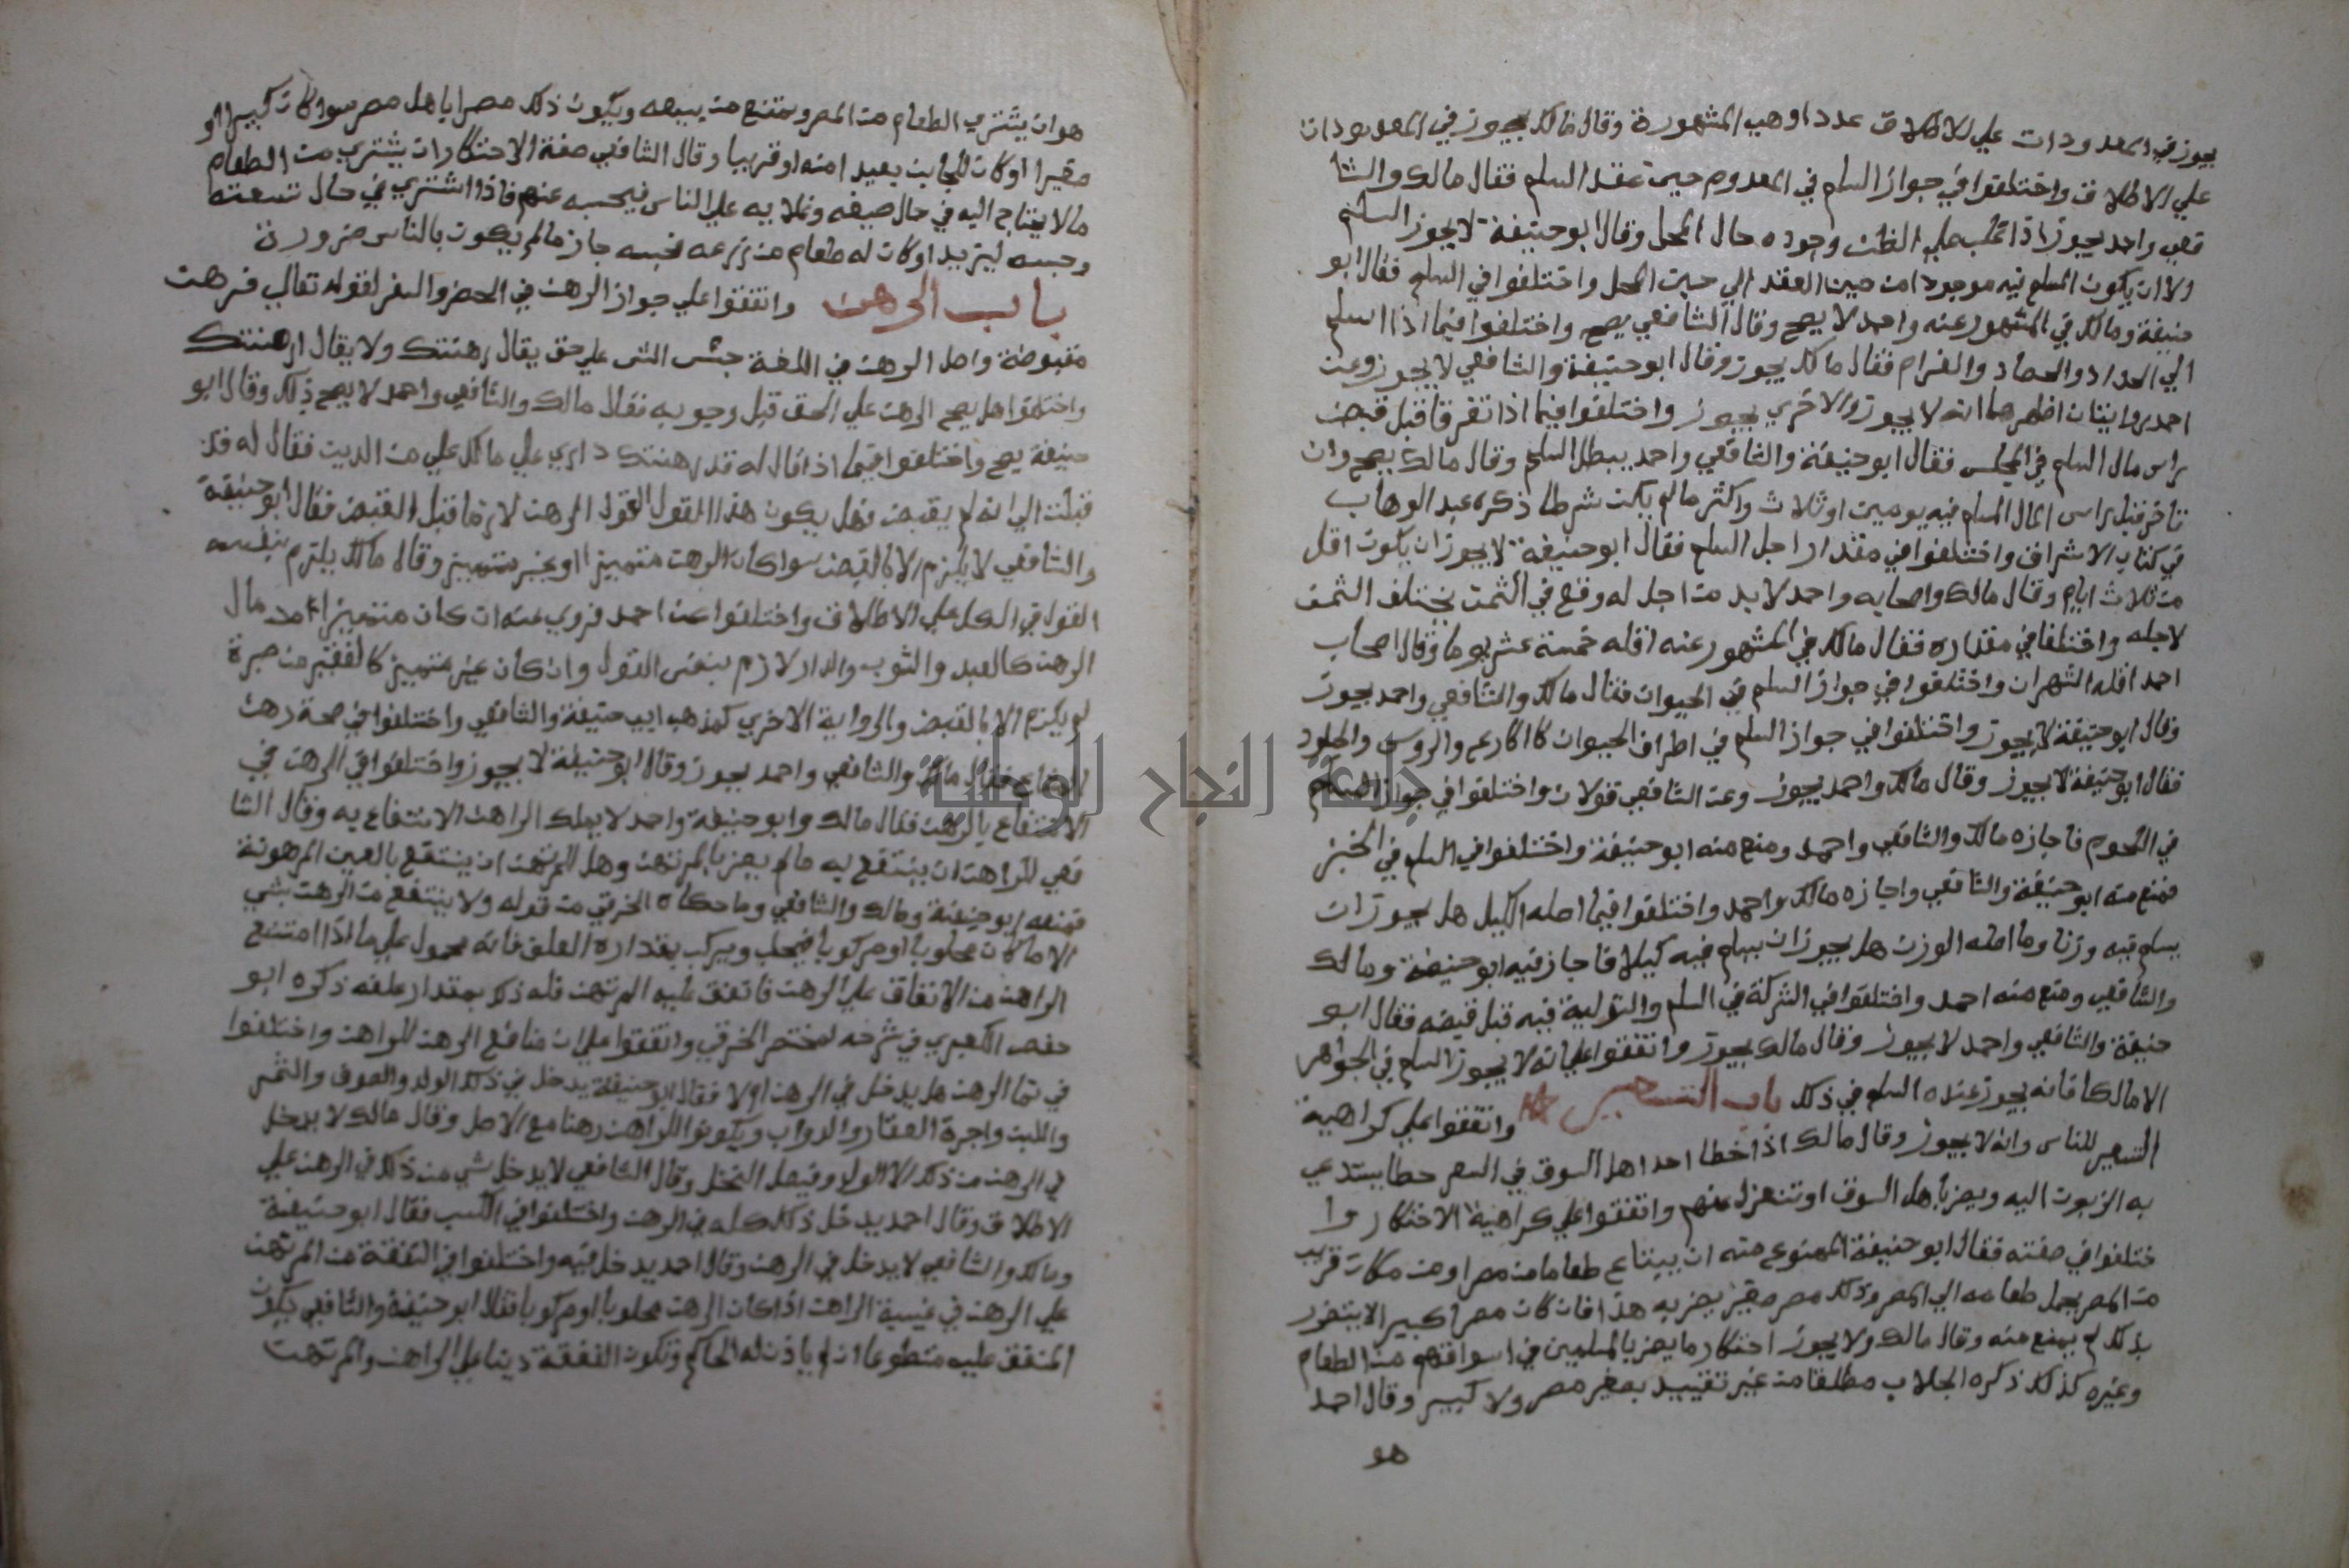 يجوز في المعدودات علي الاطلاق عددا وهي المشهورة وقال مالك يجوز في المعدودات
علي الاطلاق واختلفوا في جواز السلم في المعدوم حين عقد السلم فقال مالك والشا
فعي واحمد يجوز اذا غلب علي الظن وجوده حال المحل وقال ابو حنيفة لا يجوز السلم
الا ان يكون المسلم فيه موجودا من حين العقد الي حين المحل واختلفوا في السلم فقال ابو
حنيفة ومالك في المشهور عنه واحمد لا يصح وقال الشافعي يصح واختلفوا فيما اذا اسلم
الي الجداد والحصاد والضرام فقال مالك يجوز وقال ابو حنيفة والشافعي لا يجوز وعن
احمد روايتان اظهرهما انه لا يجوز والاخري يجوز واختلفوا فيما اذا تفرقا قبل قبض
راس مال السلم في المجلس فقال ابو حنيفة والشافعي واحمد يبطل السلم وقال مالك يصح وان
تاخر قبل راس المال المسلم فيه يومين او ثلاث واكثر مالم يكن شرطا ذكره عبد الوهاب
في كتاب الاشراف واختلفوا في مقدار اجل السلم فقال ابو حنيفة لا يجوز ان يكون اقل
من ثلاث ايام وقال مالك واصحابه واحمد لابد من اجل له وقع في الثمن يختلف الثمن
لاجله واختلفا في مقداره فقال مالك في المشهور عنه اقله خمسة عشر يوما وقال اصحاب
احمد اقله الشهران واختلفوا في جواز السلم في الحيوان فقال مالك والشافعي واحمد يجوز
وقال ابو حنيفة لا يجوز واختلفوا في جواز السلم في اطراف الحيوان كالاكارع والروس والجلود
فقال ابو حنيفة لا يجوز وقال مالك واحمد يجوز وعن الشافعي قولان واختلفوا في جواز السلم
في اللحوم فاجازه مالك والشافعي واحمد ومنع منه ابو حنيفة واختلفوا في السلم في الخبز
فمنع منه ابو حنيفة والشافعي واجازه مالك واحمد واختلفوا فيما اصله الكيل هل يجوز ان
يسلم فيه وزنا وما اصله الوزن هل يجوز ان يسلم فيه كيلا فاجاز فيه ابو حنيفة ومالك
والشافعي ومنع منه احمد واختلفوا في الشركة في السلم والتولية فيه قبل قبضه فقال ابو
حنيفة والشافعي واحمد لا يجوز وقال مالك يجوز واتفقوا علي انه لا يجوز السلم في الجواهر
الا مالكا فانه يجوز عنده السلم في ذلك باب التسعير واتفقوا علي كراهية
التسعير للناس وانه لا يجوز وقال مالك اذا خطا احد اهل السوق في السعر حطا يستدعي
به الزبون اليه ويضر باهل السوق او تنعزل عنهم واتفقوا علي كراهية الاحتكار وا
ختلفوا في صفته فقال ابو حنيفة الممنوع منه ان يبتاع طعاما من مصر او من مكان قريب
من المصر يحمل طعامه الي المصر وذلك مصر صغير يضر به هذا فان كان مصرا كبيرا لا يتضرر
بذلك لم يمنع منه وقال مالك ولا يجوز احتكار ما يضر بالمسلمين في اسواقهم من الطعام
وغيره كذلك ذكره الجلاب مطلقا من غير تقييد بصغير مصر ولا كبير وقال احمد
هو
هو ان يشتري الطعام من المصر ويمتنع من بيعه ويكون ذلك مضرا باهل مصر سوا كان كبيرا او
صغيرا او كان الجانب بعيدا منه او قريبا وقال الشافعي صفة الاحتكار ان يشتري من الطعام
ما لا يحتاج اليه في حال ضيقه وغلا به علي الناس فيحبسه عنهم فاذا اشتري في حال تسعته
وحبسه ليزيد او كان له طعام من زرعه فحبسه جاز مالم يكون بالناس ضرورة
باب الرهن واتفقوا علي جواز الرهن في الحضر والسفر لقوله تعالي فرهن
مقبوضة واصل الرهن في اللغة حبس الشي علي حق يقال رهنتك ولا يقال ارهنتك
واختلفوا هل يصح الرهن علي الحق قبل وجوبه فقال مالك والشافعي واحمد لا يصح ذلك وقال ابو
حنيفة يصح واختلفوا فيما اذا قال له قد رهنتك داري علي مالك علي من الدين فقال له قد
قبلت الي انه لم يقبض فهل يكون هذا القول القول الرهن لازما قبل القبض فقال ابو حنيفة
والشافعي لا يلزم الا بالقبض سوا كان الرهن متميزا او غير متميز وقال مالك يلتزم بنفسه
القول في الكل علي الاطلاق واختلفوا عن احمد فروي عنه ان كان متميزا مال
الرهن كالعبد والثوب والدار لازم بنفس القول وان كان غير متميز كالقفيز من صبرة
لم يلزم الا بالقبض والرواية الاخري كمذهب ابي حنيفة والشافعي واختلفوا في صحة رهن
المشاع فقال مالك والشافعي واحمد يجوز وقال ابو حنيفة لا يجوز واختلفوا في الرهن في
الانتفاع بالرهن فقال مالك وابو حنيفة واحمد لا يملك الراهن الانتفاع به وقال الشا
فعي للراهن ان ينتفع به مالم يضر بالمرتهن وهل للمرتهن ان ينتفع بالعين المرهونة
فمنعه ابو حنيفة ومالك والشافعي وما حكاه الخرقي من قوله ولا ينتفع من الرهن بشي
الا ما كان محلوبا او مركوبا فيحلب ويركب بمقداره العلف فانه محمول علي ما اذا امتنع
الراهن من الانفاق علي الرهن فانفق عليه المرتهن فله ذلك بمقدار علفه ذكره ابو
حفص العكبري في شرحه لمختصر الخرقي واتفقوا علي ان منافع الرهن للراهن واختلفوا
في نما الرهن هل يدخل في الرهن اولا فقال ابو حنيفة يدخل في ذلك الولد والصوف والثمر
واللبن واجرة العقار والدواب ويكون للراهن رهنا مع الاصل وقال مالك لا يدخل
في الرهن من ذلك الا الولد وفيصل النخل وقال الشافعي لا يدخل شي من ذلك في الرهن علي
الاطلاق وقال احمد يدخل ذلك كله في الرهن واختلفوا في الكسب فقال ابو حنيفة
ومالك والشافعي لا يدخل في الرهن وقال احمد يدخل فيه واختلفوا في النفقة من المرتهن
علي الرهن في غيبة الراهن اذا كان الرهن محلوبا او مركوبا فقال ابو حنيفة والشافعي يكون
المنفق عليه متطوعا ان لم ياذن له الحاكم وتكون النفقة دينا علي الراهن والمرتهن
جامعة النجاح الوطنية